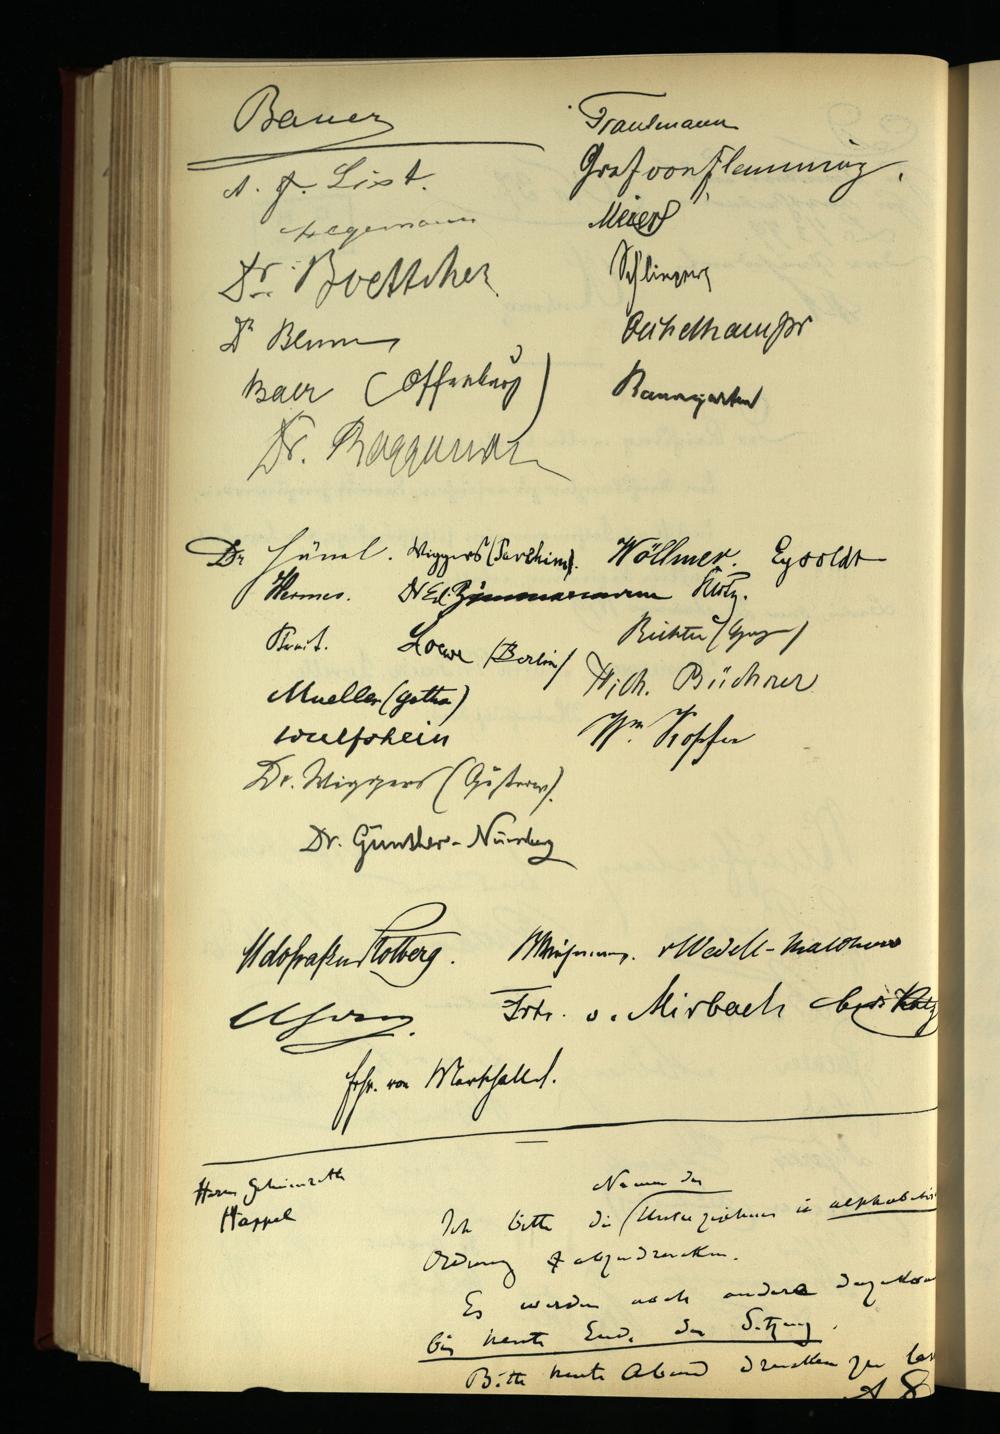 Bauer
A. F. List.
Hegemann
Dr. Boettcher
Dr Blum
Baer (Offenburg)
Dr.
Trautmann
Graf von Flemming.
Meier
Oechelhaeuser
Baumgarten
Dr Hänel. Wiggers (Parchim). Wöllmer. Eysoldt
Hermes. Dr Ed. Zimmermann Klotz.
Loewe (Berlin) Richter (Hagen)
Mueller (Gotha) Hch. Büchner
Wulfshein Wm. Hopfer
Dr. Wiggers (Güstrow).
Dr. Günther-Nürnberg
Udo Graf zu Stolberg. v Wedell-Malchow
Frhr. v. Mirbach
Frhr. von Marschall.
Herrn Geheimrath
Happel
Namen der
Ich bitte die Unterzeichner in alphabetis
Ordnung abzudrucken.
Es werden noch andere dazukom
bis heute Ende der Sitzung.
Bitte heute Abend drucken zu las